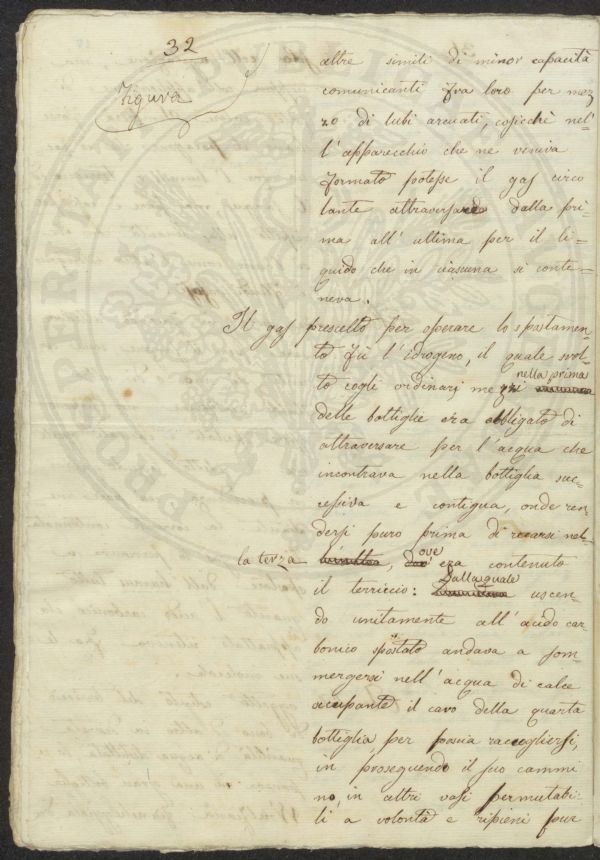 32
Figura
altre simili di minor capacità
comunicanti fra loro per mez
zo di tubi arcuati, cosicchè nel-
l'apparecchio che ne veniva
formato potesse il gas circo
lante attraversare dalla pri-
ma all'ultima per il li-
quido che in ciascuna si conte-
neva.
Il gas prescelto per operare lo spostamen-
to fù l'idrogeno, il quale svol-
to cogli ordinarj mezzi nella prima
delle bottiglie era obbligato di
attraversare per l'acqua che
incontrava nella bottiglia suc-
cessiva e contigua, onde ren
dersi puro prima di recarsi nel-
la terza, ove era contenuto
il terriccio: Dalla quale uscen-
do unitamente all'acido car
bonico spostato andava a som-
mergersi nell'acqua di calce
occupante il cavo della quarta
bottiglia per poscia raccogliersi,
in proseguendo il suo cammi
no, in altri vasi permutabi-
li a volontà e ripieni pur